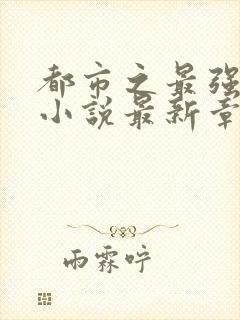 都市之最强
小说最新章
雨霖咛